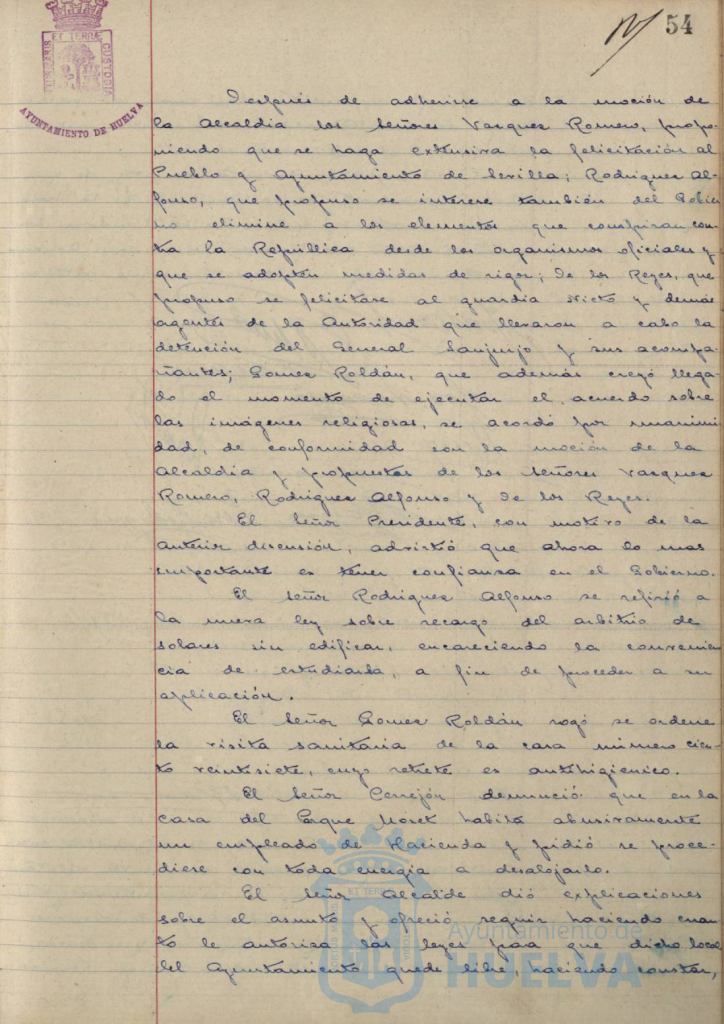 54
PORTUS MARIS ET TERRAE CUSTODIA
AYUNTAMIENTO DE HUELVA
Después de adherirse a la moción de
la Alcaldía los Señores Vazquez Romero, propo-
niendo que se haga extensiva la felicitación al
Pueblo y Ayuntamiento de Sevilla; Rodriguez Al-
fonso, que propuso se interese también del Gobier
no elimine a los elementos que conspiran con-
tra la República desde los organismos oficiales y
que se adopten medidas de rigor; De los Reyes, que
propuso se felicitáse al guardia Nieto y demás
agentes de la Autoridad que llevaron a cabo la
detención del General Sanjurjo y sus acompa-
ñantes; Gomez Roldán, que además creyó llega-
do el momento de ejecutar el acuerdo sobre
las imágenes religiosas, se acordó por unanimi
dad, de conformidad con la moción de la
Alcaldía y propuestas de los Señores Vazquez
Romero, Rodriguez Alfonso y De los Reyes.
El Señor Presidente, con motivo de la
anterior discusión, advirtió que ahora lo mas
importante es tener confianza en el Gobierno.
El Señor Rodriguez Alfonso se refirió a
la nueva ley sobre recargo del arbitrio de
solares sin edificar, encareciendo la convenien
cia de estudiarla, a fin de proceder a su
aplicación.
El Señor Gomez Roldán rogó se ordene
la visita sanitaria de la casa número cien-
to veintisiete, cuyo retrete es antihigiénico.
El Señor Cerrejón denunció que en la
casa del Parque Moret habita abusivamente
un empleado de Hacienda y pidió se proce-
diese con toda energia a desalojarlo.
El Señor Alcalde dió explicaciones
sobre el asunto y ofreció seguir haciendo cuan
to le autoriza las leyes para que dicho local
del Ayuntamiento quede libre, haciendo constar,
Ayuntamiento de
HUELVA